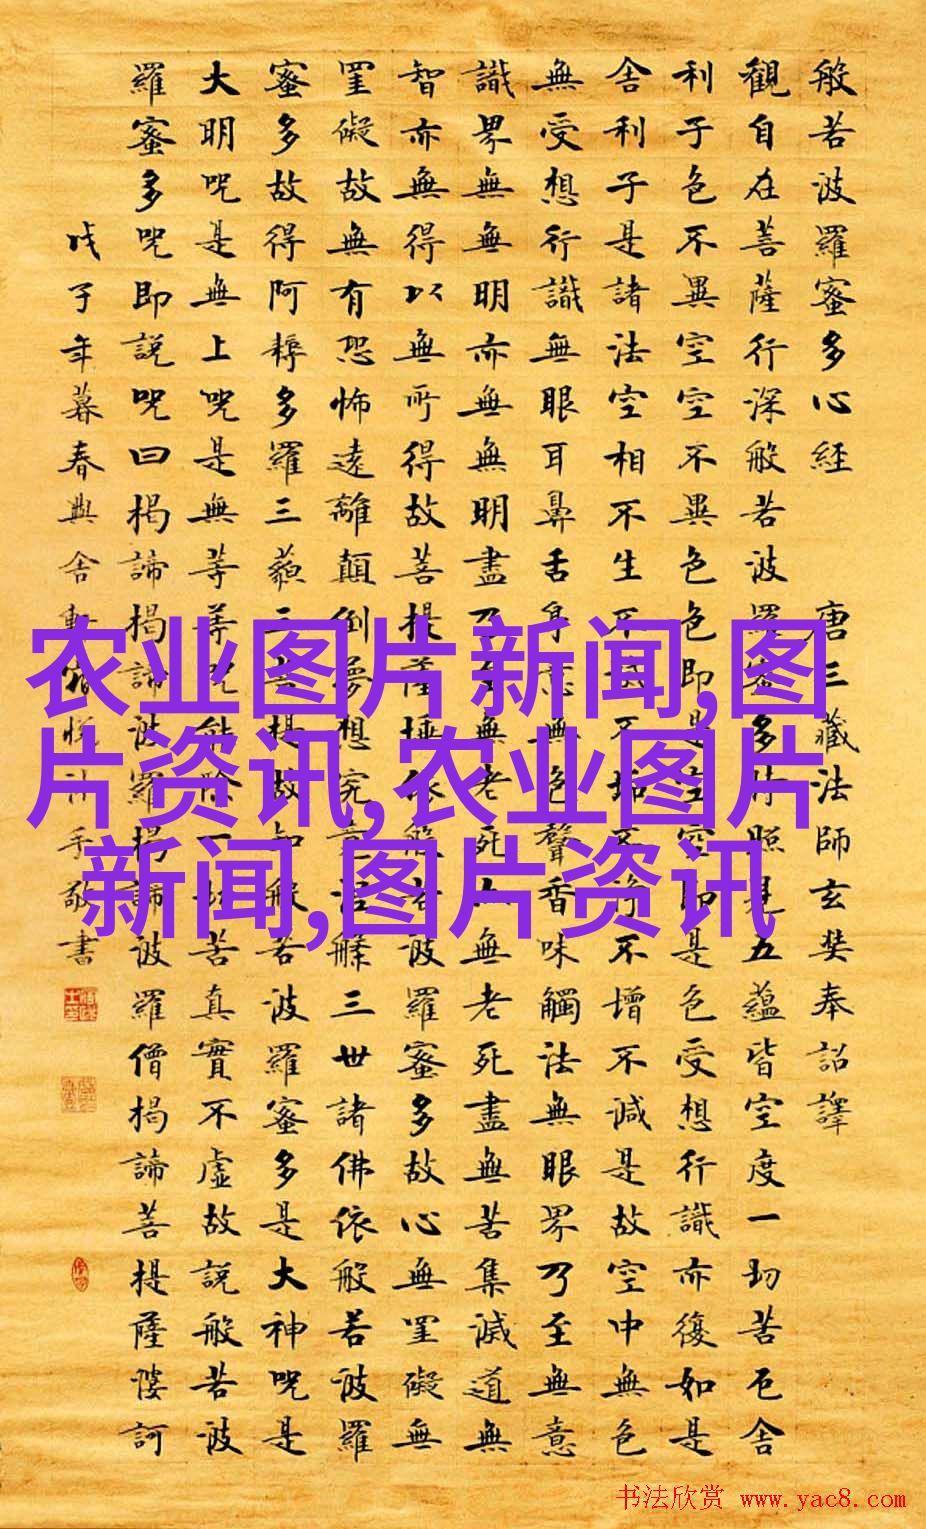 般若波羅蜜多心經 唐三藏法師玄奘奉詔譯
觀自在菩薩行深般若波羅蜜多時照見五蘊皆空度一切苦厄舍
利子色不異空空不異色色即是空空即是色受想行識亦復如是
舍利子是諸法空相不生不滅不垢不淨不增不減是故空中無色
無受想行識無眼耳鼻舌身意無色聲香味觸法無眼界乃至無意
識界無無明亦無無明盡乃至無老死亦無老死盡無苦集滅道無
智亦無得以無所得故菩提薩埵依般若波羅蜜多故心無罣礙無
罣礙故無有恐怖遠離顛倒夢想究竟涅槃三世諸佛依般若波羅
蜜多故得阿耨多羅三藐三菩提故知般若波羅蜜多是大神咒是
大明咒是無上咒是無等等咒能除一切苦真實不虛故說般若波
羅蜜多咒即說咒曰揭諦揭諦波羅揭諦波羅僧揭諦菩提薩婆訶
戊子年暮春興舍 手敬書
农业图片新闻,图
片资讯,农业图片
新闻,图片资讯
书法欣赏 www.yac8.com